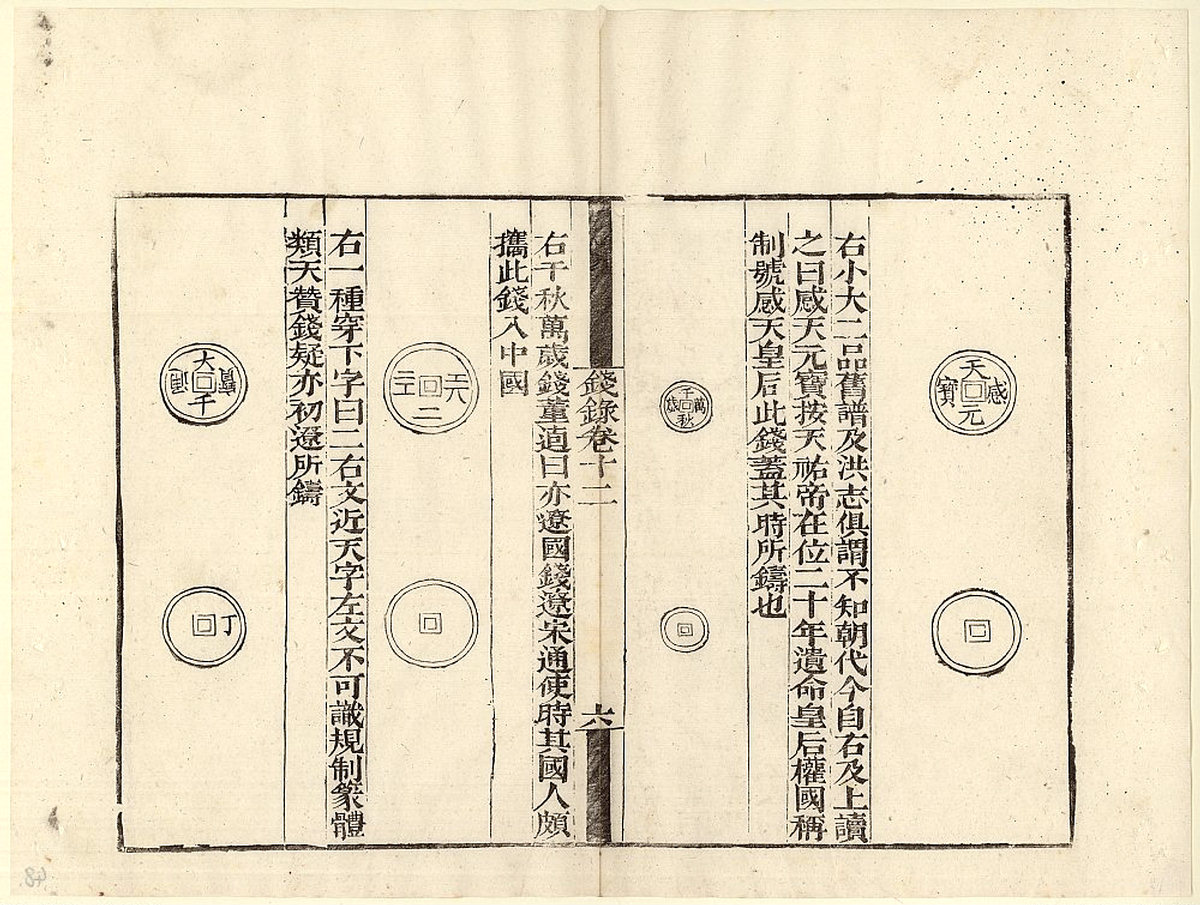 天感元寶
右小大二品舊譜及洪志俱謂不知朝代今自右及上讀
之曰感天元寶按天祐帝在位二十年遺命皇后權國稱
制號感天皇后此錢蓋其時所鑄也
千萬秋歲
錢錄卷十二
六
右千秋萬歲錢董逌曰亦遼國錢遼宋通使時其國人頗
攜此錢入中國
二
右一種穿下字曰二右文近天字左文不可識規制篆體
類天贊錢疑亦初遼所鑄
大千
丁
48